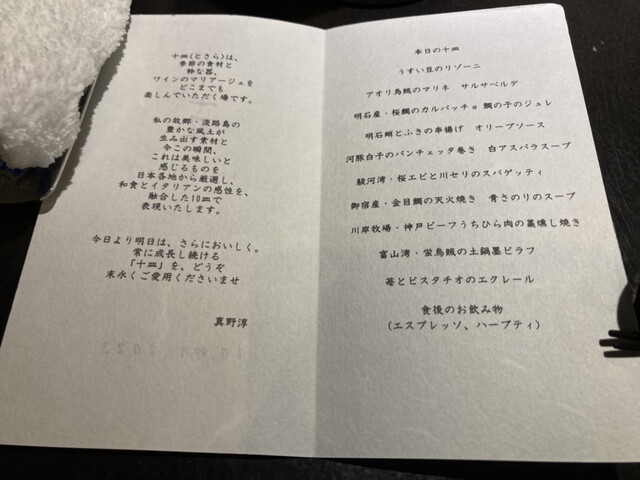 十皿(とさら)は、
季節の食材と
粋な器、
ワインのマリアージュを
どこまでも
楽しんでいただく場です。
私の故郷・淡路島の
豊かな風土が
生み出す素材と
今この瞬間、
これは美味しいと
感じるものを
日本各地から厳選し、
和食とイタリアンの感性を、
融合した10皿で
表現いたします。
今日より明日は、さらにおいしく。
常に成長し続ける
「十皿」を、どうぞ
末永くご愛用くださいませ
真野淳
本日の十皿
うすい豆のリゾーニ
アオリ烏賊のマリネ サルサベルデ
明石産・桜鯛のカルパッチョ 鯛の子のジュレ
明石蛸とふきの串揚げ オリーブソース
河豚白子のパンチェッタ巻き 白アスパラスープ
駿河湾・桜エビと川セリのスパゲッティ
御宿産・金目鯛の天火焼き 青さのりのスープ
川岸牧場・神戸ビーフうちひら肉の藁燻し焼き
富山湾・蛍烏賊の土鍋墨ピラフ
苺とピスタチオのエクレール
食後のお飲み物
(エスプレッソ、ハーブティ)